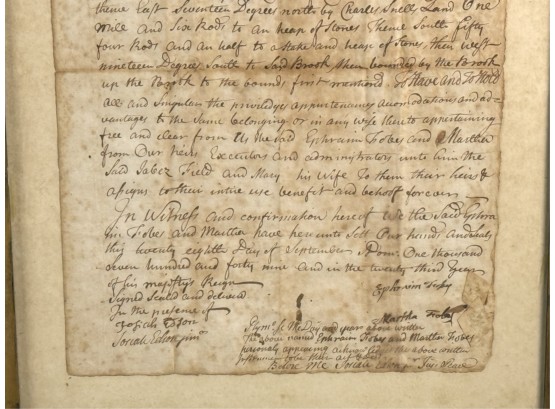 thence East Seventeen Degrees north by Charles Snells Land One
Mile and Six Rods to an heap of Stones Thence South fifty
four Rods and an half to a stake and heap of Stones, then west
nineteen Degrees South to Said Brook then bounded by the Brook
up the Brook to the bounds first mentiond To Have and To Hold
all and Singulan the priviledges appurtenances Acomodations and ad-
vantages to the Same belonging or in any wise thereto appertaining
free and clear from Us the said Ephraim Fobes and Martha
from Our heirs Executors and administrators unto him the
Said Jabez Field and Mary his Wife To them their heirs &
assigns to their intire use benefit and behoof forever
In Witness and confirmation hereof We the Said Ephra
im Fobes and Martha have hereunto Sett Our hands and seals
this twenty eighth Day of September A Dom. One thousand
seven hundred and forty nine and in the twenty third Year
of his majestys Reign
Signed Seald and deliverd
In the presence of
Josiah Edson
Josiah Edson junr
Ephraim Fobes
Martha Fobes
Plymo ss The Day and year above written
The above named Ephraim Fobes and Martha Fobes
personaly appearing acknowledged the above written
Instrument to be their act &
Before me Josiah Edson Jus Peace